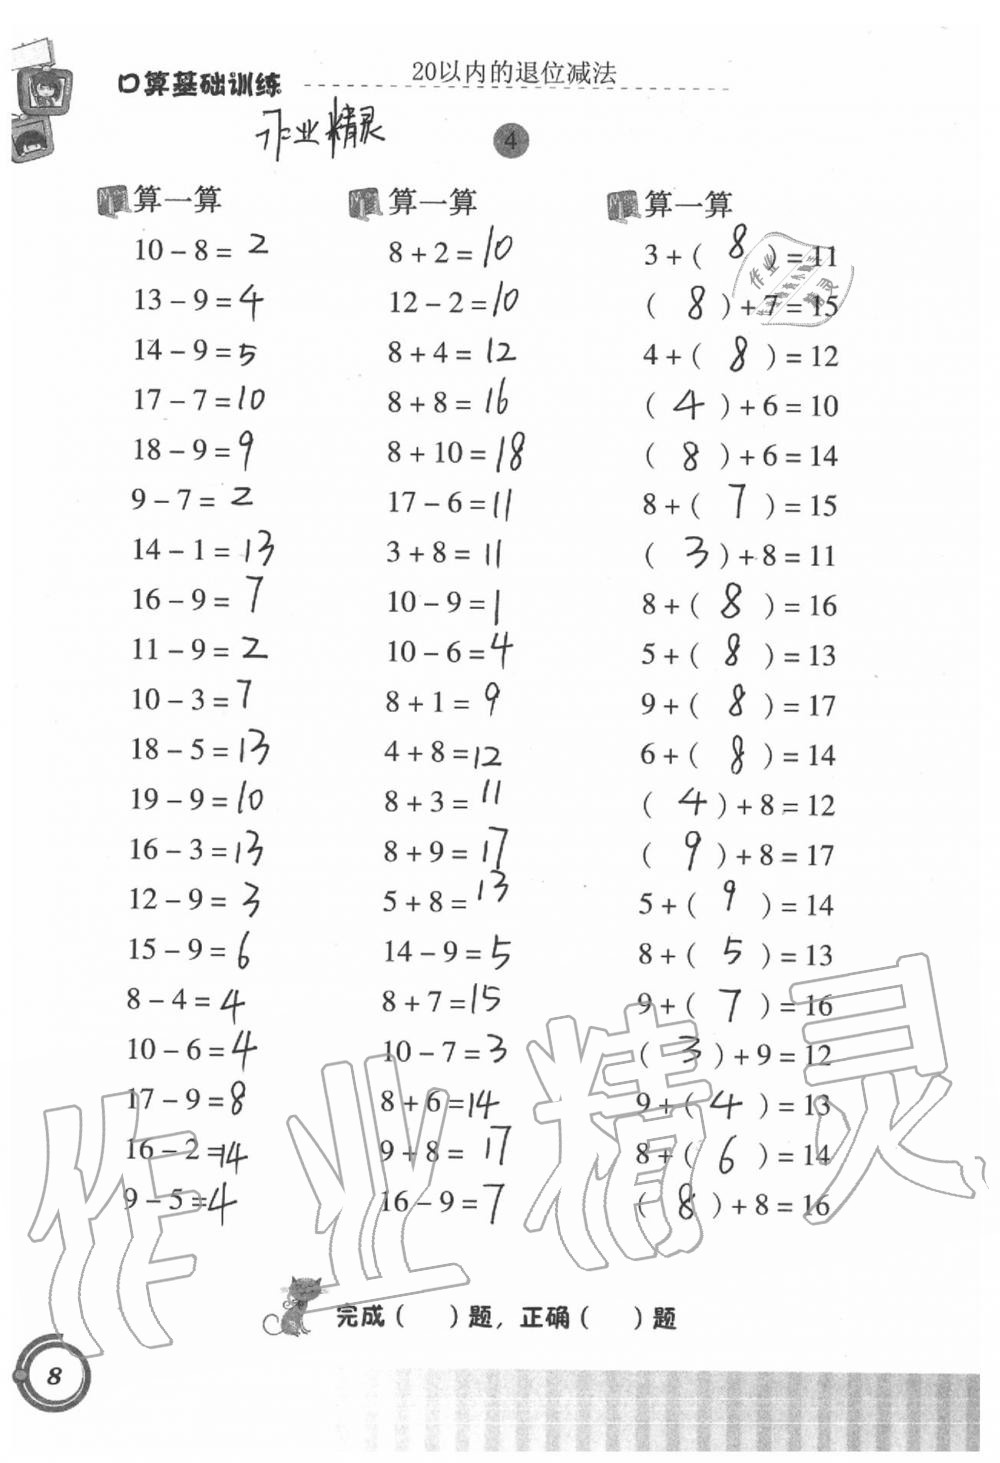 口算基础训练 20以内的退位减法
作业精灵
4
算一算 算一算 算一算
10－8＝2 8＋2＝10 3＋(8)＝11
13－9＝4 12－2＝10 (8)＋7＝15
14－9＝5 8＋4＝12 4＋(8)＝12
17－7＝10 8＋8＝16 (4)＋6＝10
18－9＝9 8＋10＝18 (8)＋6＝14
9－7＝2 17－6＝11 8＋(7)＝15
14－1＝13 3＋8＝11 (3)＋8＝11
16－9＝7 10－9＝1 8＋(8)＝16
11－9＝2 10－6＝4 5＋(8)＝13
10－3＝7 8＋1＝9 9＋(8)＝17
18－5＝13 4＋8＝12 6＋(8)＝14
19－9＝10 8＋3＝11 (4)＋8＝12
16－3＝13 8＋9＝17 (9)＋8＝17
12－9＝3 5＋8＝13 5＋(9)＝14
15－9＝6 14－9＝5 8＋(5)＝13
8－4＝4 8＋7＝15 9＋(7)＝16
10－6＝4 10－7＝3 (3)＋9＝12
17－9＝8 8＋6＝14 9＋(4)＝13
16－2＝14 9＋8＝17 8＋(6)＝14
9－5＝4 16－9＝7 (8)＋8＝16
作业精灵
完成（ ）题，正确（ ）题
8